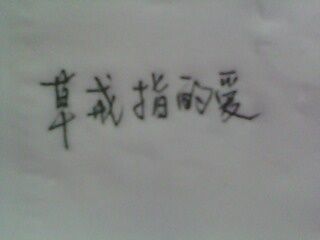 草戒指的爱